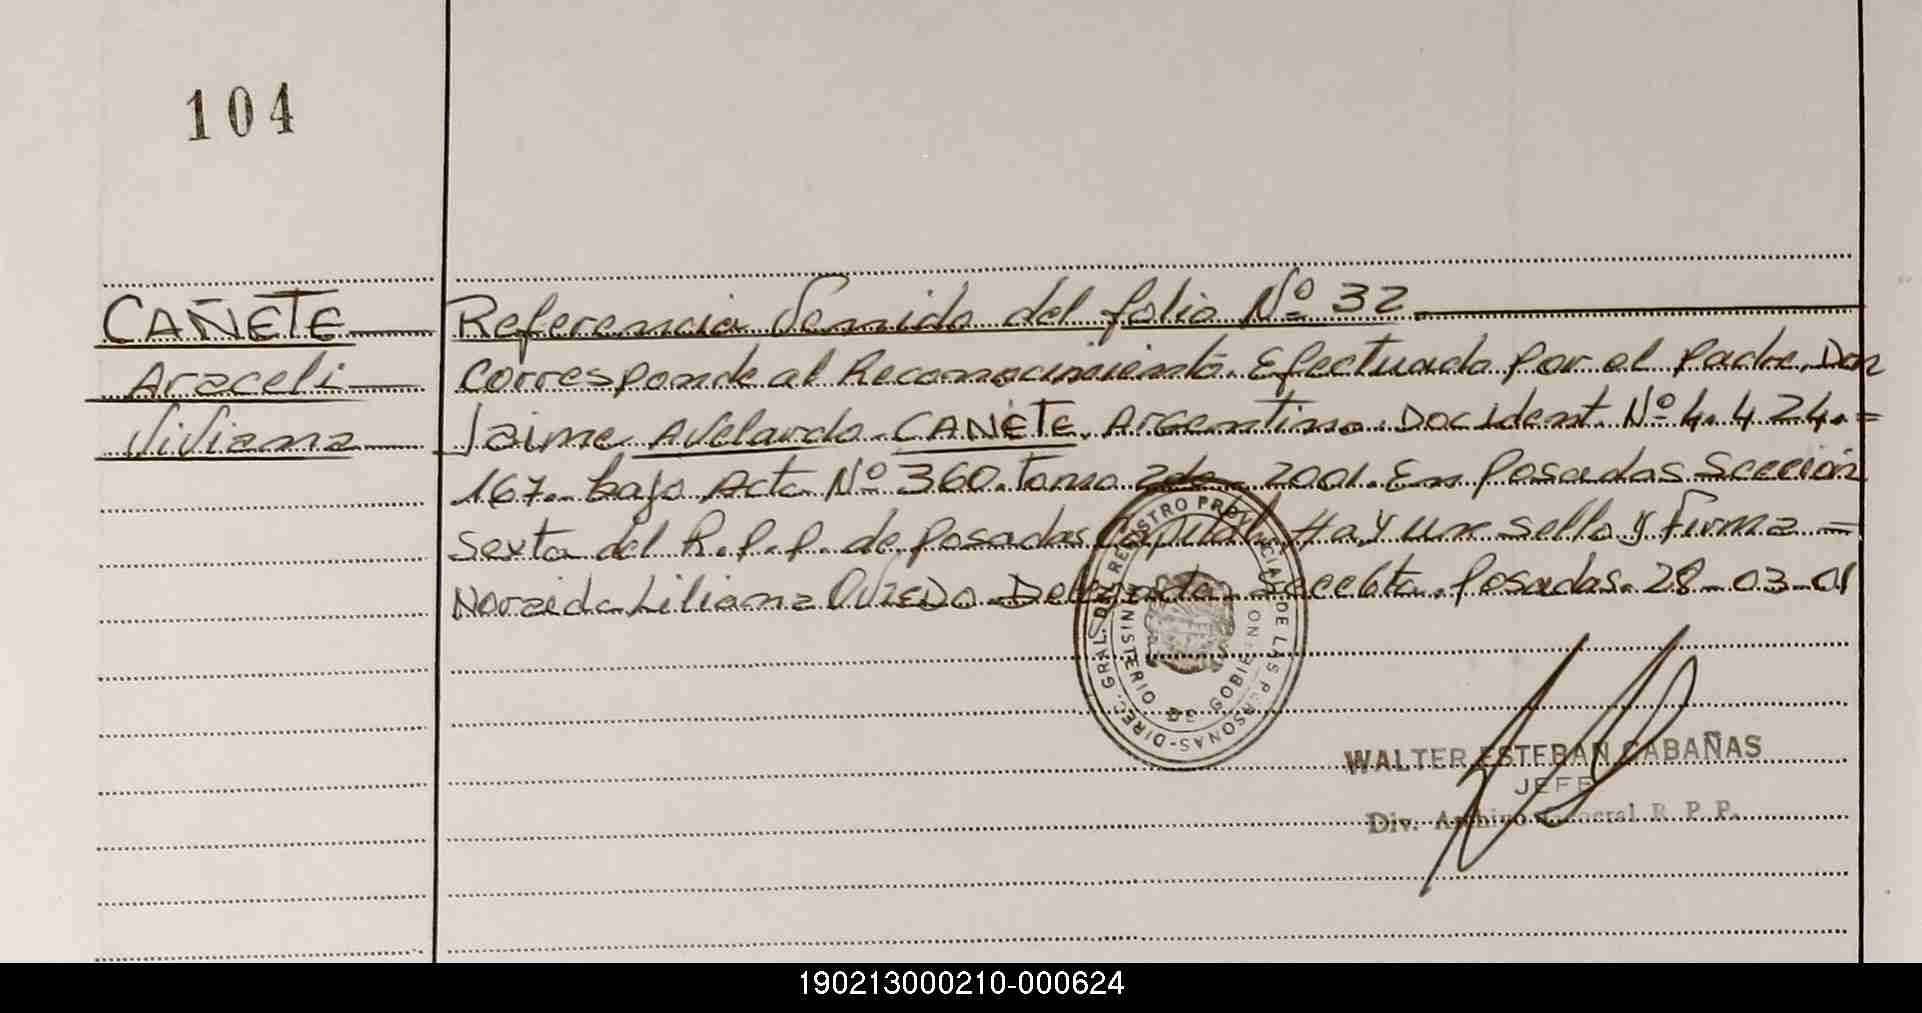 104
CAÑETE
Araceli
Viviana
Referencia Venida del folio Nº 32.
Corresponde al Reconocimiento. Efectuado por el Padre, Don
Jaime Avelardo CAÑETE. Argentino. Doc ident. Nº 4.424.=
167. bajo Acta Nº 360. Tomo 2do 2001. En Posadas Sección
Sexta del R.P.P. de Posadas Capital. Hay un sello y Firma =
Noraida Liliana OVIEDO. Delegada Posadas. 28-03-01
DIREC. GRAL. DEL REGISTRO PROVINCIAL DE LAS PERSONAS-
MINISTERIO DE GOBIERNO
WALTER ESTEBAN CABAÑAS
JEFE
Div. Archivo General R. P. P.
190213000210-000624